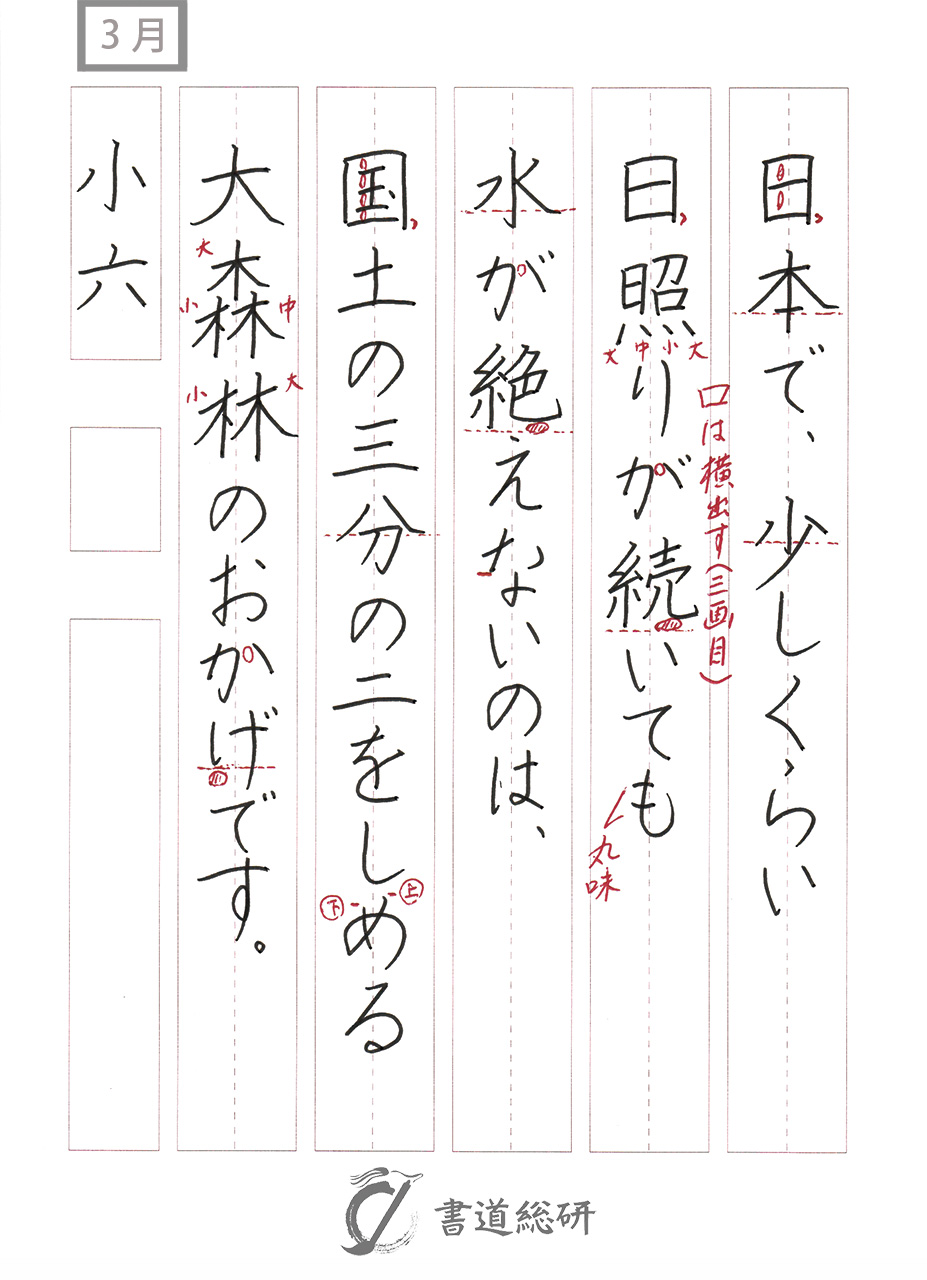 3月
日本で、少しくらい
日照りが続いても
水が絶えないのは、
国土の三分の二をしめる
大森林のおかげです。
小六
口は横出す(三画目)
大中小大
丸味
上
下
大
小
中
小
大
書道総研